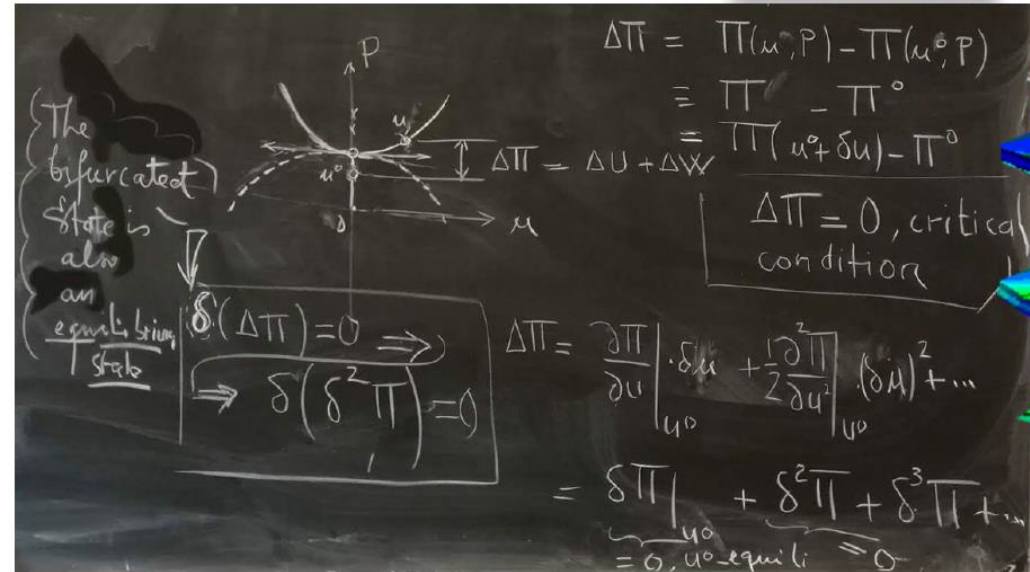 (The
bifurcated
state is
also
an
equilibrium
state
P
u
u°
ΔΠ = ΔU + ΔW
0
u
δ(ΔΠ) = 0 ⇒
⇒ δ(δ²Π) = 0
ΔΠ = Π(u, P) − Π(u°, P)
≡ Π − Π°
= Π(u° + δu) − Π°
ΔΠ = 0, critical
condition
ΔΠ = ∂Π/∂u |u° · δu + 1/2 ∂²Π/∂u² |u° · (δu)² + ...
= δΠ|u° + δ²Π + δ³Π + ...
= 0, u°-equili = 0